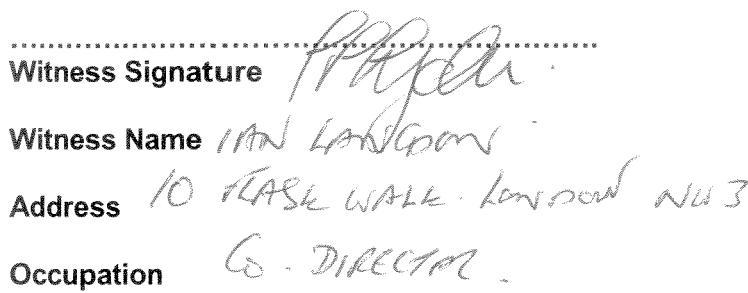 Witness Signature
Witness Name IAN LANGDON
Address 10 FLASK WALK. LONDON NW3
Occupation Co. DIRECTOR.